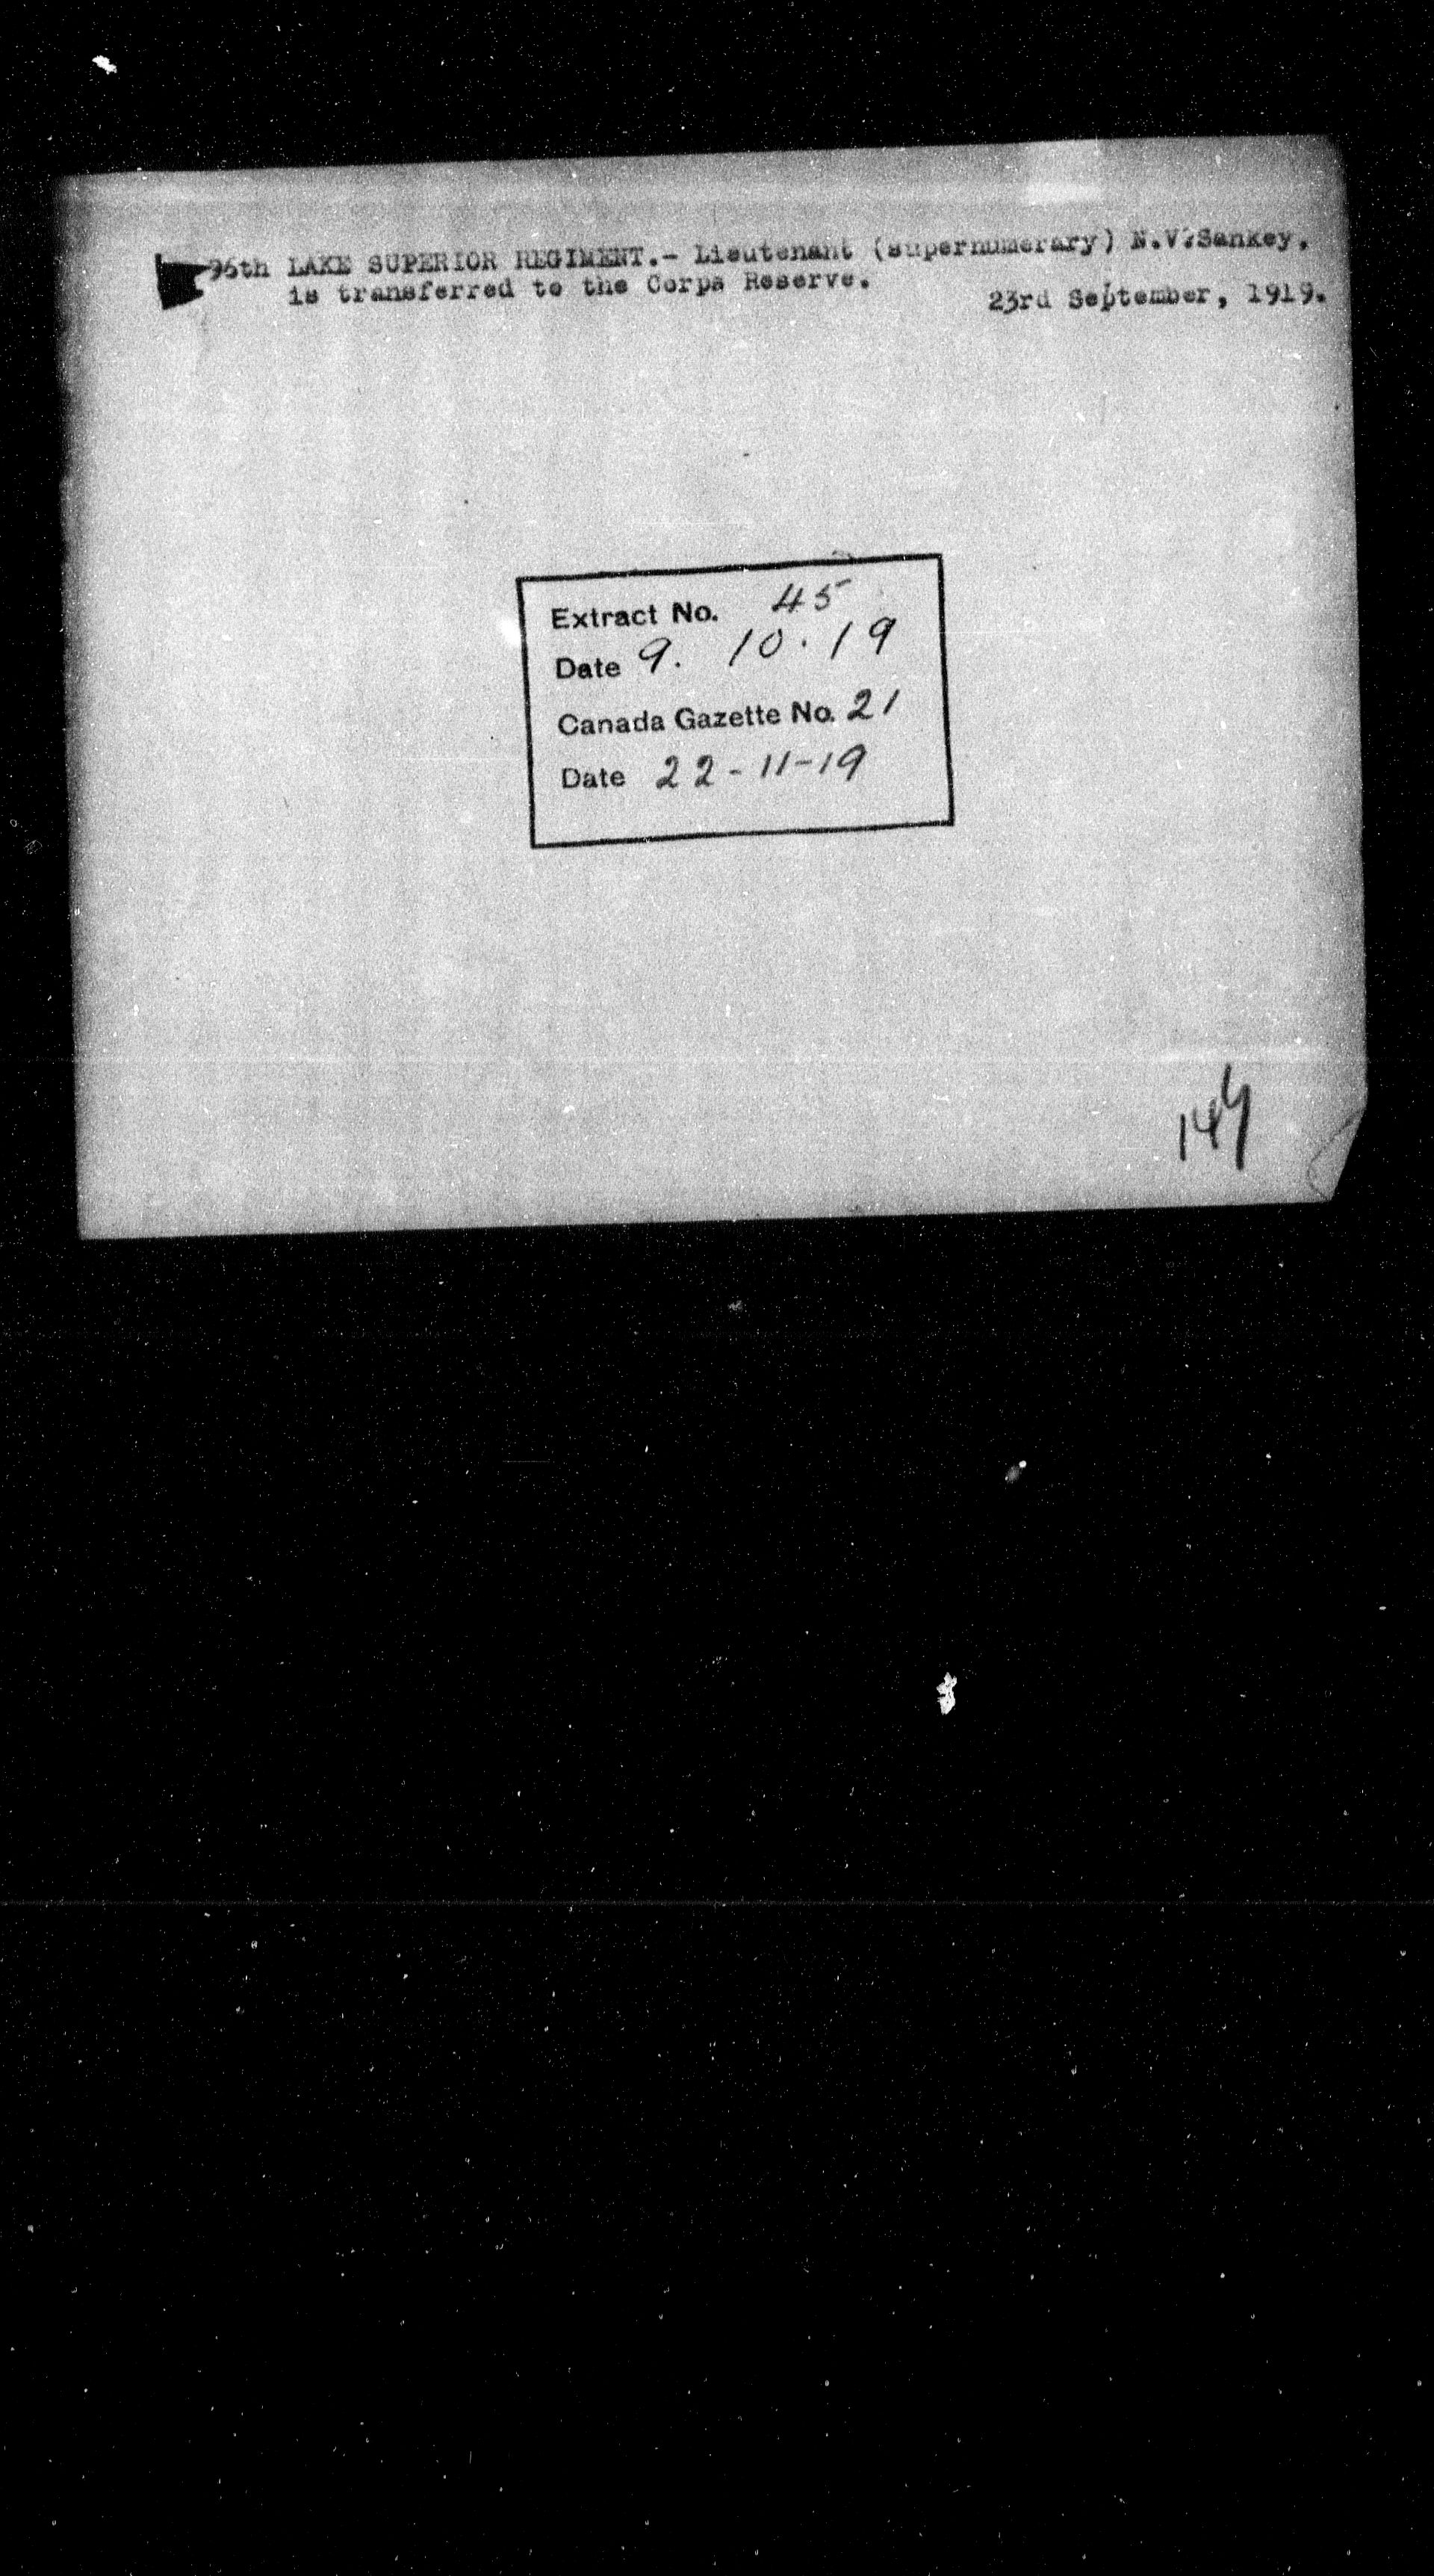 96th LAKE SUPERIOR REGIMENT.- Lieutenant (supernumerary) N.V.Sankey,
is transferred to the Corps Reserve.
23rd September, 1919.
Extract No. 45
Date 9. 10. 19
Canada Gazette No. 21
Date 22-11-19